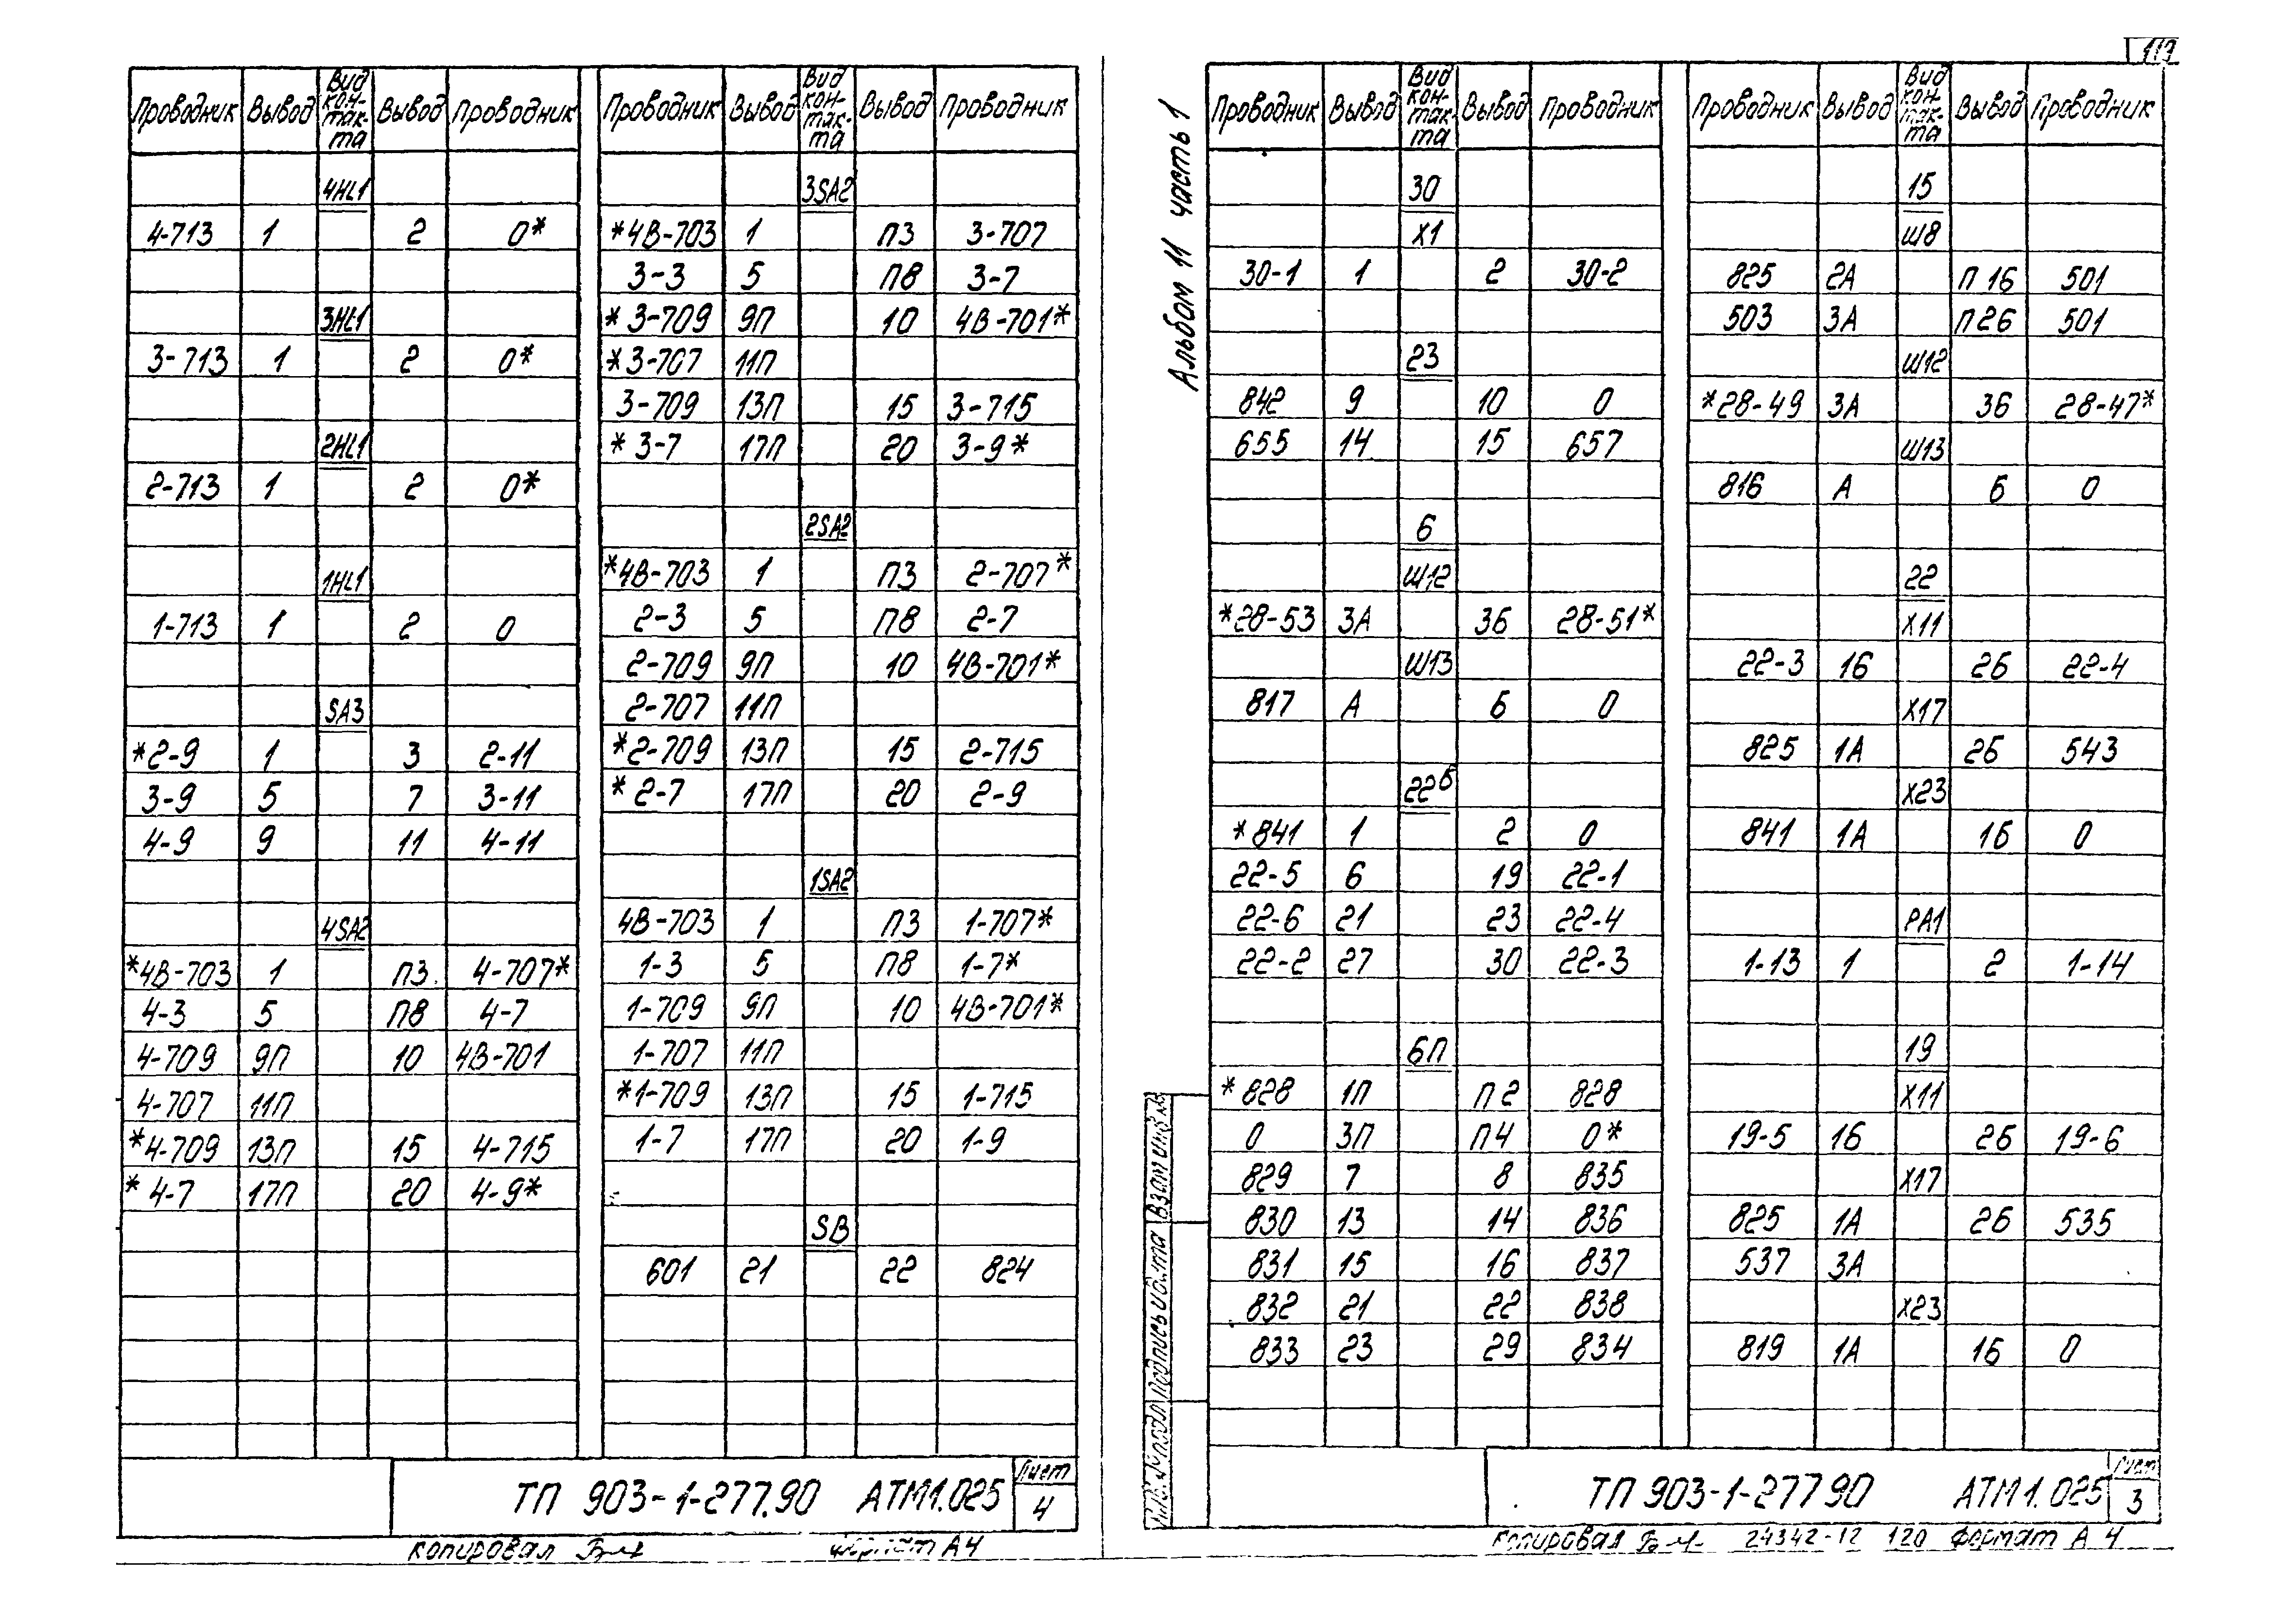 Проводник Вывод Вид кон-так-та Вывод Проводник
4HL1
4-713 1 2 0*
3HL1
3-713 1 2 0*
2HL1
2-713 1 2 0*
1HL1
1-713 1 2 0
SA3
*2-9 1 3 2-11
3-9 5 7 3-11
4-9 9 11 4-11
4SA2
*4В-703 1 П3 4-707*
4-3 5 П8 4-7
4-709 9П 10 4В-701
4-707 11П
*4-709 13П 15 4-715
*4-7 17П 20 4-9*
Проводник Вывод Вид кон-так-та Вывод Проводник
3SA2
*4В-703 1 П3 3-707
3-3 5 П8 3-7
*3-709 9П 10 4В-701*
*3-707 11П
3-709 13П 15 3-715
*3-7 17П 20 3-9*
2SA2
*4В-703 1 П3 2-707*
2-3 5 П8 2-7
2-709 9П 10 4В-701*
2-707 11П
*2-709 13П 15 2-715
*2-7 17П 20 2-9
1SA2
4В-703 1 П3 1-707*
1-3 5 П8 1-7*
1-709 9П 10 4В-701*
1-707 11П
*1-709 13П 15 1-715
1-7 17П 20 1-9
SB
601 21 22 824
ТП 903-1-277.90 АТМ1.025
Лист
4
Копировал
Формат А4
Альбом 11 часть 1
Проводник Вывод Вид кон-так-та Вывод Проводник
30
Х1
30-1 1 2 30-2
23
842 9 10 0
655 14 15 657
6
Ш12
*28-53 3А 3б 28-51*
Ш13
817 А Б 0
22б
*841 1 2 0
22-5 6 19 22-1
22-6 21 23 22-4
22-2 27 30 22-3
6П
*828 1П П2 828
0 3П П4 0*
829 7 8 835
830 13 14 836
831 15 16 837
832 21 22 838
833 23 29 834
Проводник Вывод Вид кон-так-та Вывод Проводник
15
Ш8
825 2А П1б 501
503 3А П2б 501
Ш12
*28-49 3А 3б 28-47*
Ш13
816 А Б 0
22
Х11
22-3 1б 2б 22-4
Х17
825 1А 2б 543
Х23
841 1А 1б 0
РА1
1-13 1 2 1-14
19
Х11
19-5 1б 2б 19-6
Х17
825 1А 2б 535
537 3А
Х23
819 1А 1б 0
Инв.№ подл Подпись и дата Взам инв №
ТП 903-1-277 90 АТМ1.025
Лист
3
Копировал
24342-12 120 Формат А4